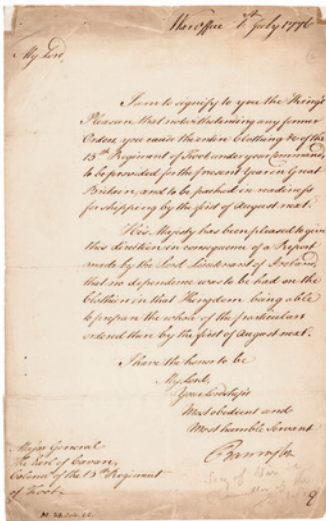 War Office 1st July 1776
My Lord,
I am to signify to you the King's
Pleasure, that notwithstanding any former
Orders, you cause the entire Clothing &c of the
15th Regiment of Foot under your Command,
to be provided for the present Year in Great
Britain, and to be packed in readiness
for shipping by the first of August next.
His Majesty has been pleased to give
this direction in consequence of a Report
made by the Lord Lieutenant of Ireland,
that no dependence was to be had on the
Clothiers in that Kingdom being able
to prepare the whole of the particulars
ordered there by the first of August next.
I have the honor to be
My Lord,
Your Lordship's
Most obedient and
Most humble Servant
Barrington
Major General
The Earl of Cavan,
Colonel of the 15th Regiment
of Foot.